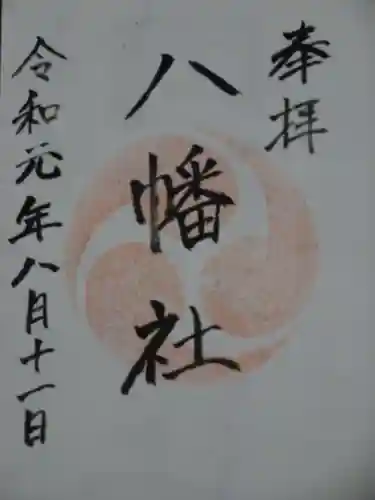 奉拝
八幡社
令和元年八月十一日